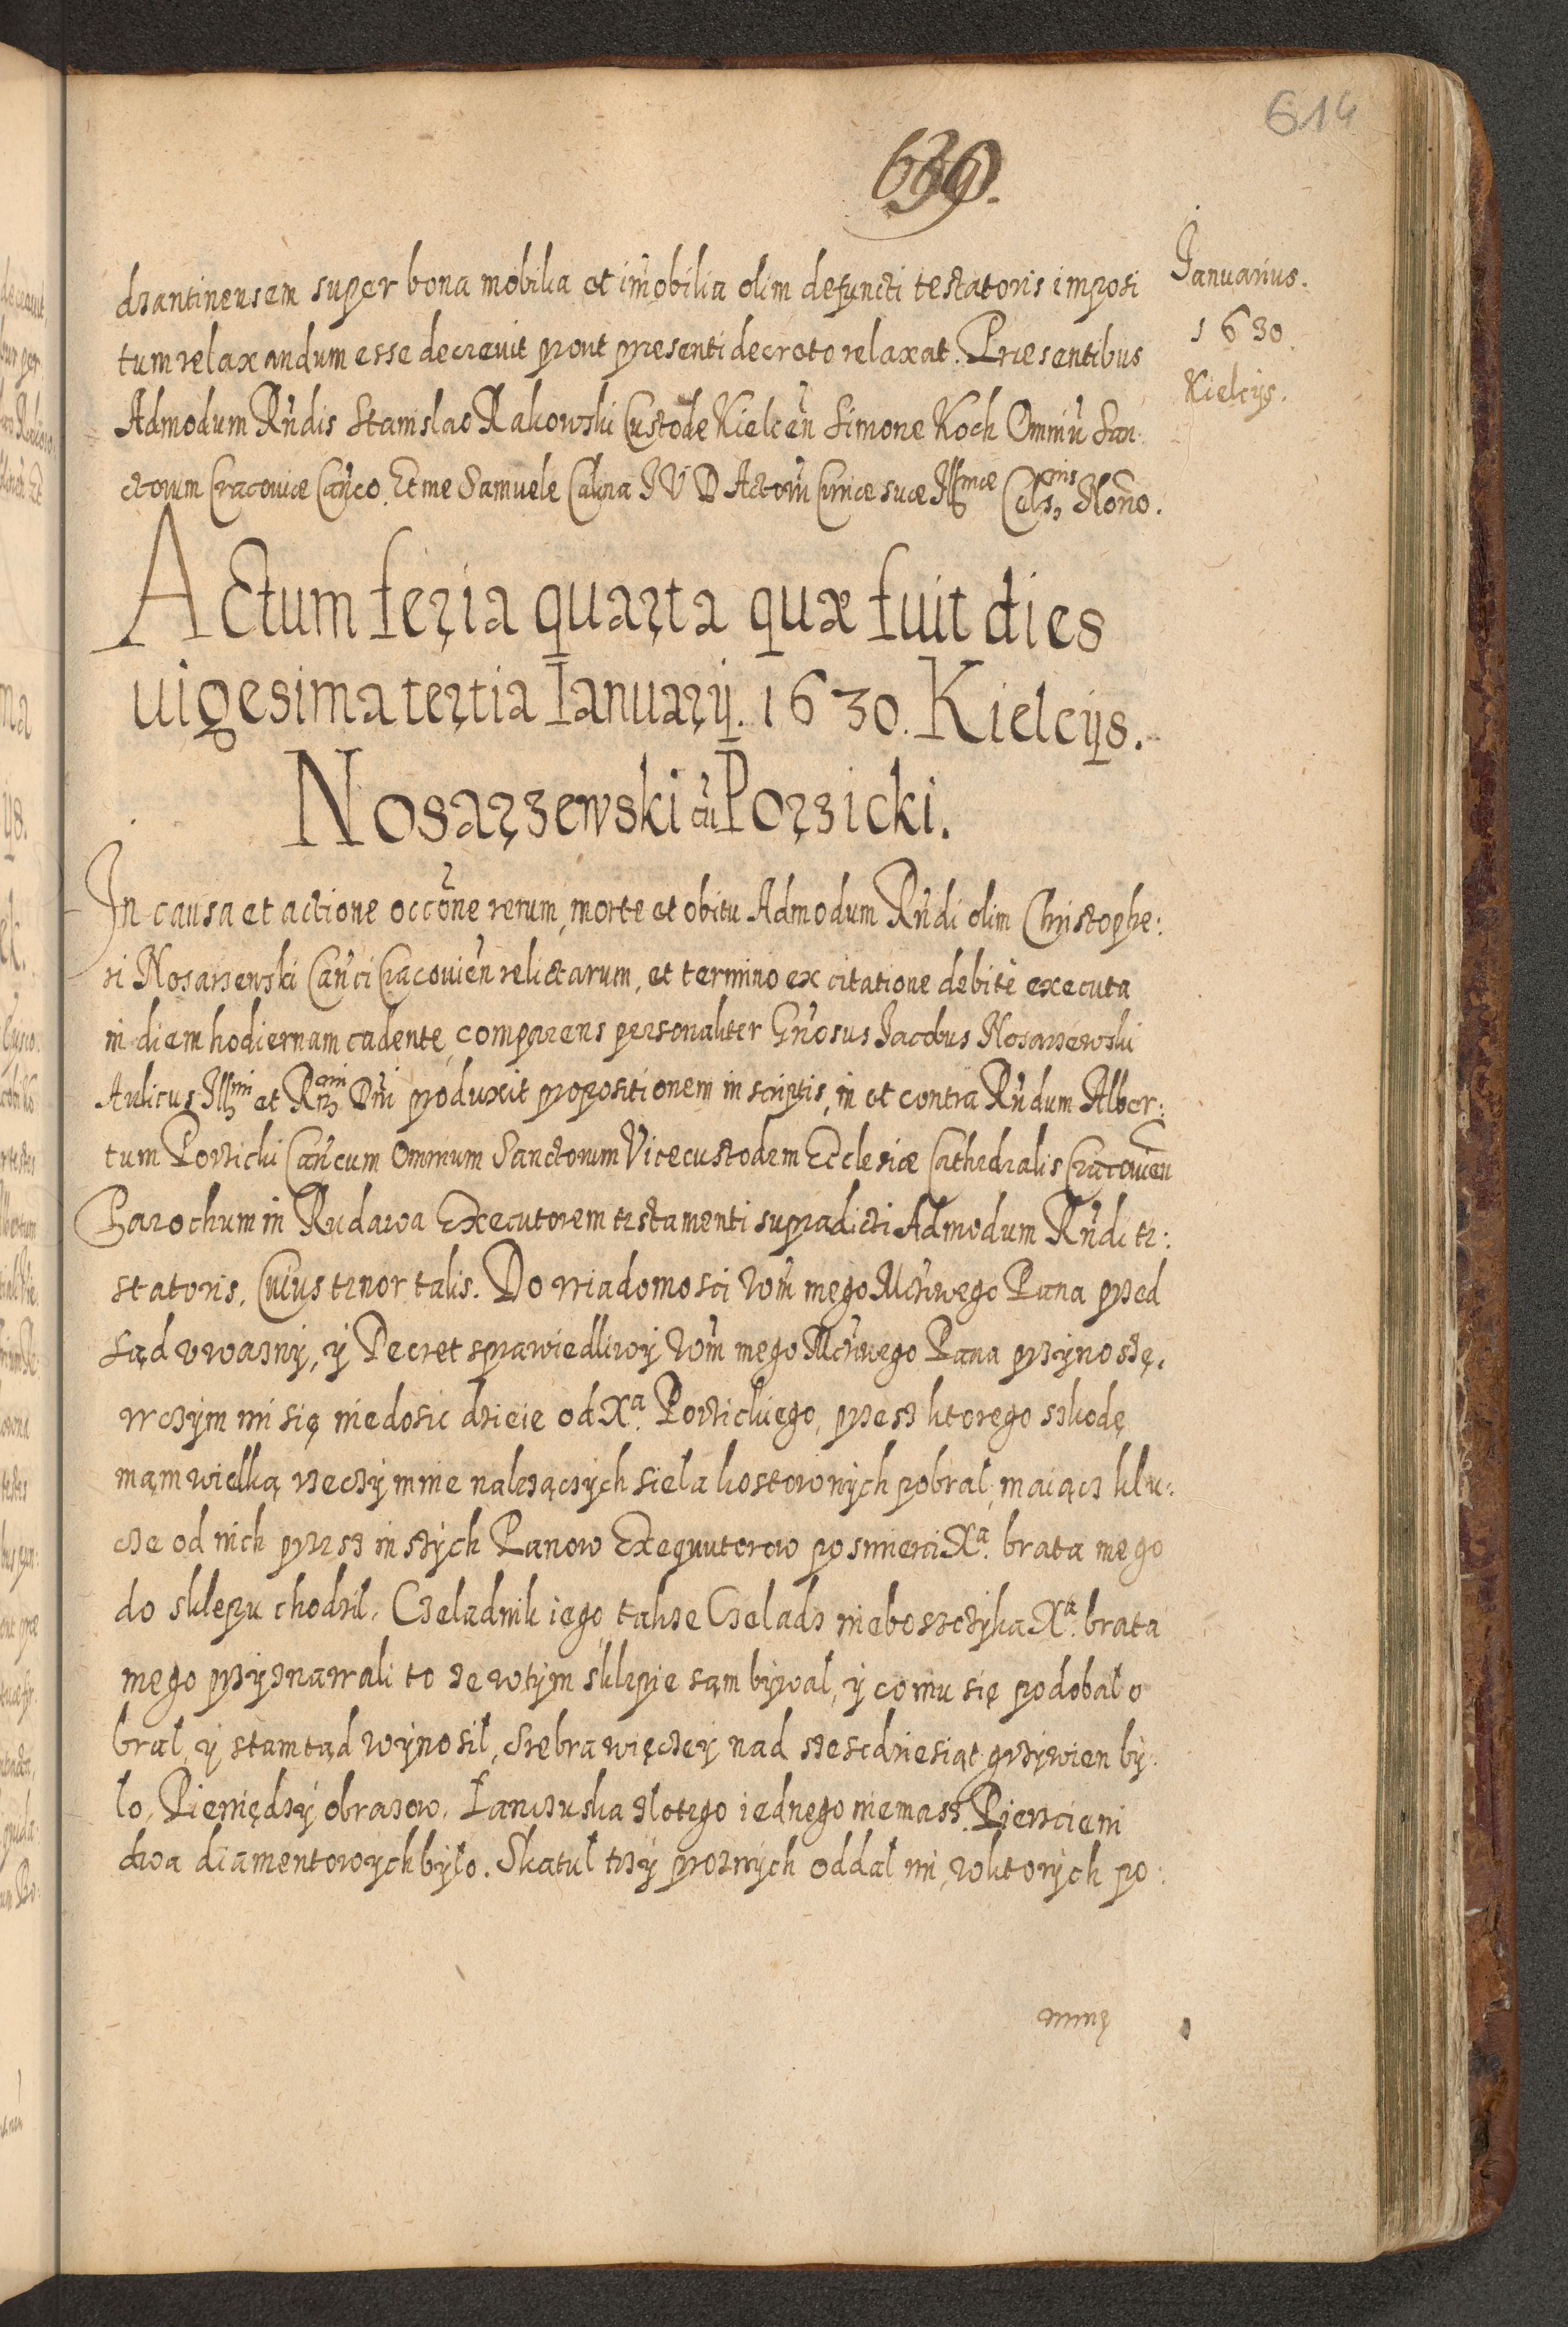 614
639.
Januarius.
1630.
Kielcijs.
dzantinensem super bona mobilia et im̃obilia olim defuncti testatoris imposi
tum relaxandum esse decrevit prout presenti decreto relaxat. Præsentibus
Admodum Rñdis Stanislao Rakowski Custode Kielceñ Simone Koch Omniũ San
ctorum Cracoviæ Cañco. Et me Samuele Calina J V D Actorũ Cũriæ suæ Illmæ Celsnis Noño.
Actum feria quarta quæ fuit dies
vigesima tertia Ianuarij. 1630. Kielcijs.
Nosarzewski cũ Porzicki.
In causa et actione occõne rerum, morte et obitu Admodum Rñdi olim Christophe:
ri Nosarzewski Cañci Cracovień relictarum, et termino ex citatione debitè executa
in diem hodiernam cadente, comparens personaliter Gñosus Jacobus Nosarzewski
Aulicus Illmi et Rmi Dñi produxit propositionem in scriptis, in et contra Rñdum Alber:
tum Porzicki Cañcum Omnium Sanctorum Vicecustodem Ecclesiæ Cathedralis Cracovień
Parochum in Rudawa Executorem testamenti supradicti Admodum Rñdi te:
statoris, Cuius tenor talis. Do wiadomosci Wm̃ mego Mcżiwego Pana przed
Sąd vwazny, y Decret sprawiedliwy Wm̃ mego Mcżiwego Pana przynoszę,
wczym mi się niedosic dzieie od Xa. Porzickiego, przesz ktorego szkodę
mąm wielką rzeczy mnie nalezączych sieła kostownych pobral, maiącz klu:
cze od nich przesz inszych Panow Exequutorow po smierci Xa. brata mego
do sklepu chodzil. Czeladnik iego takze Czeladz nieboszczyka Xa. brata
mego przyznawali to ze wtym sklepie sąm bywal, y co mu się podobało
bral, y stamtąd wynosił, Srebra więczey nad szescdziesiąt grzywien by:
lo, Pieniędzy obrazow. Łanczuska złotego iednego niemasz. Pierscieni
dwa diamentowych było. Skatuł trzy proznych oddał mi, wktorych po: